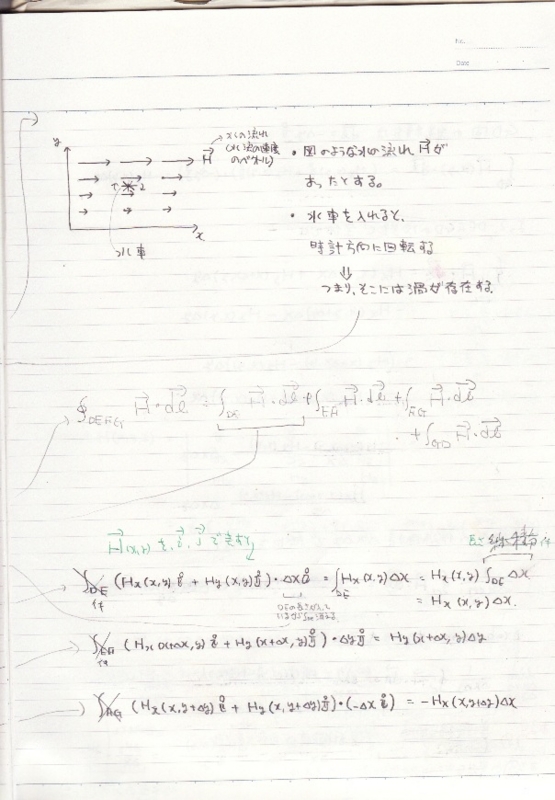 No.
Date
y
水の流れ
(水流の速度
のベクトル)
H
・図のような水の流れ H が
あったとする。
1 2
・水車を入れると、
x
時計方向に回転する
水車
⇓
つまり、そこには渦が存在する。
∮DEFG H・dl = ∫DE H・dl + ∫EF H・dl + ∫FG H・dl
+ ∫GD H・dl
H(x,y) を, i, j で表すと
線積分
∫DE (Hx(x,y) i + Hy(x,y) j)・Δx i = ∫DE Hx(x,y)Δx = Hx(x,y) ∫DE Δx
= Hx(x,y)Δx.
(Hx(x+Δx,y) i + Hy(x+Δx,y) j)・Δy j = Hy(x+Δx,y)Δy
(Hx(x,y+Δy) i + Hy(x,y+Δy) j)・(-Δx i) = -Hx(x,y+Δy)Δx